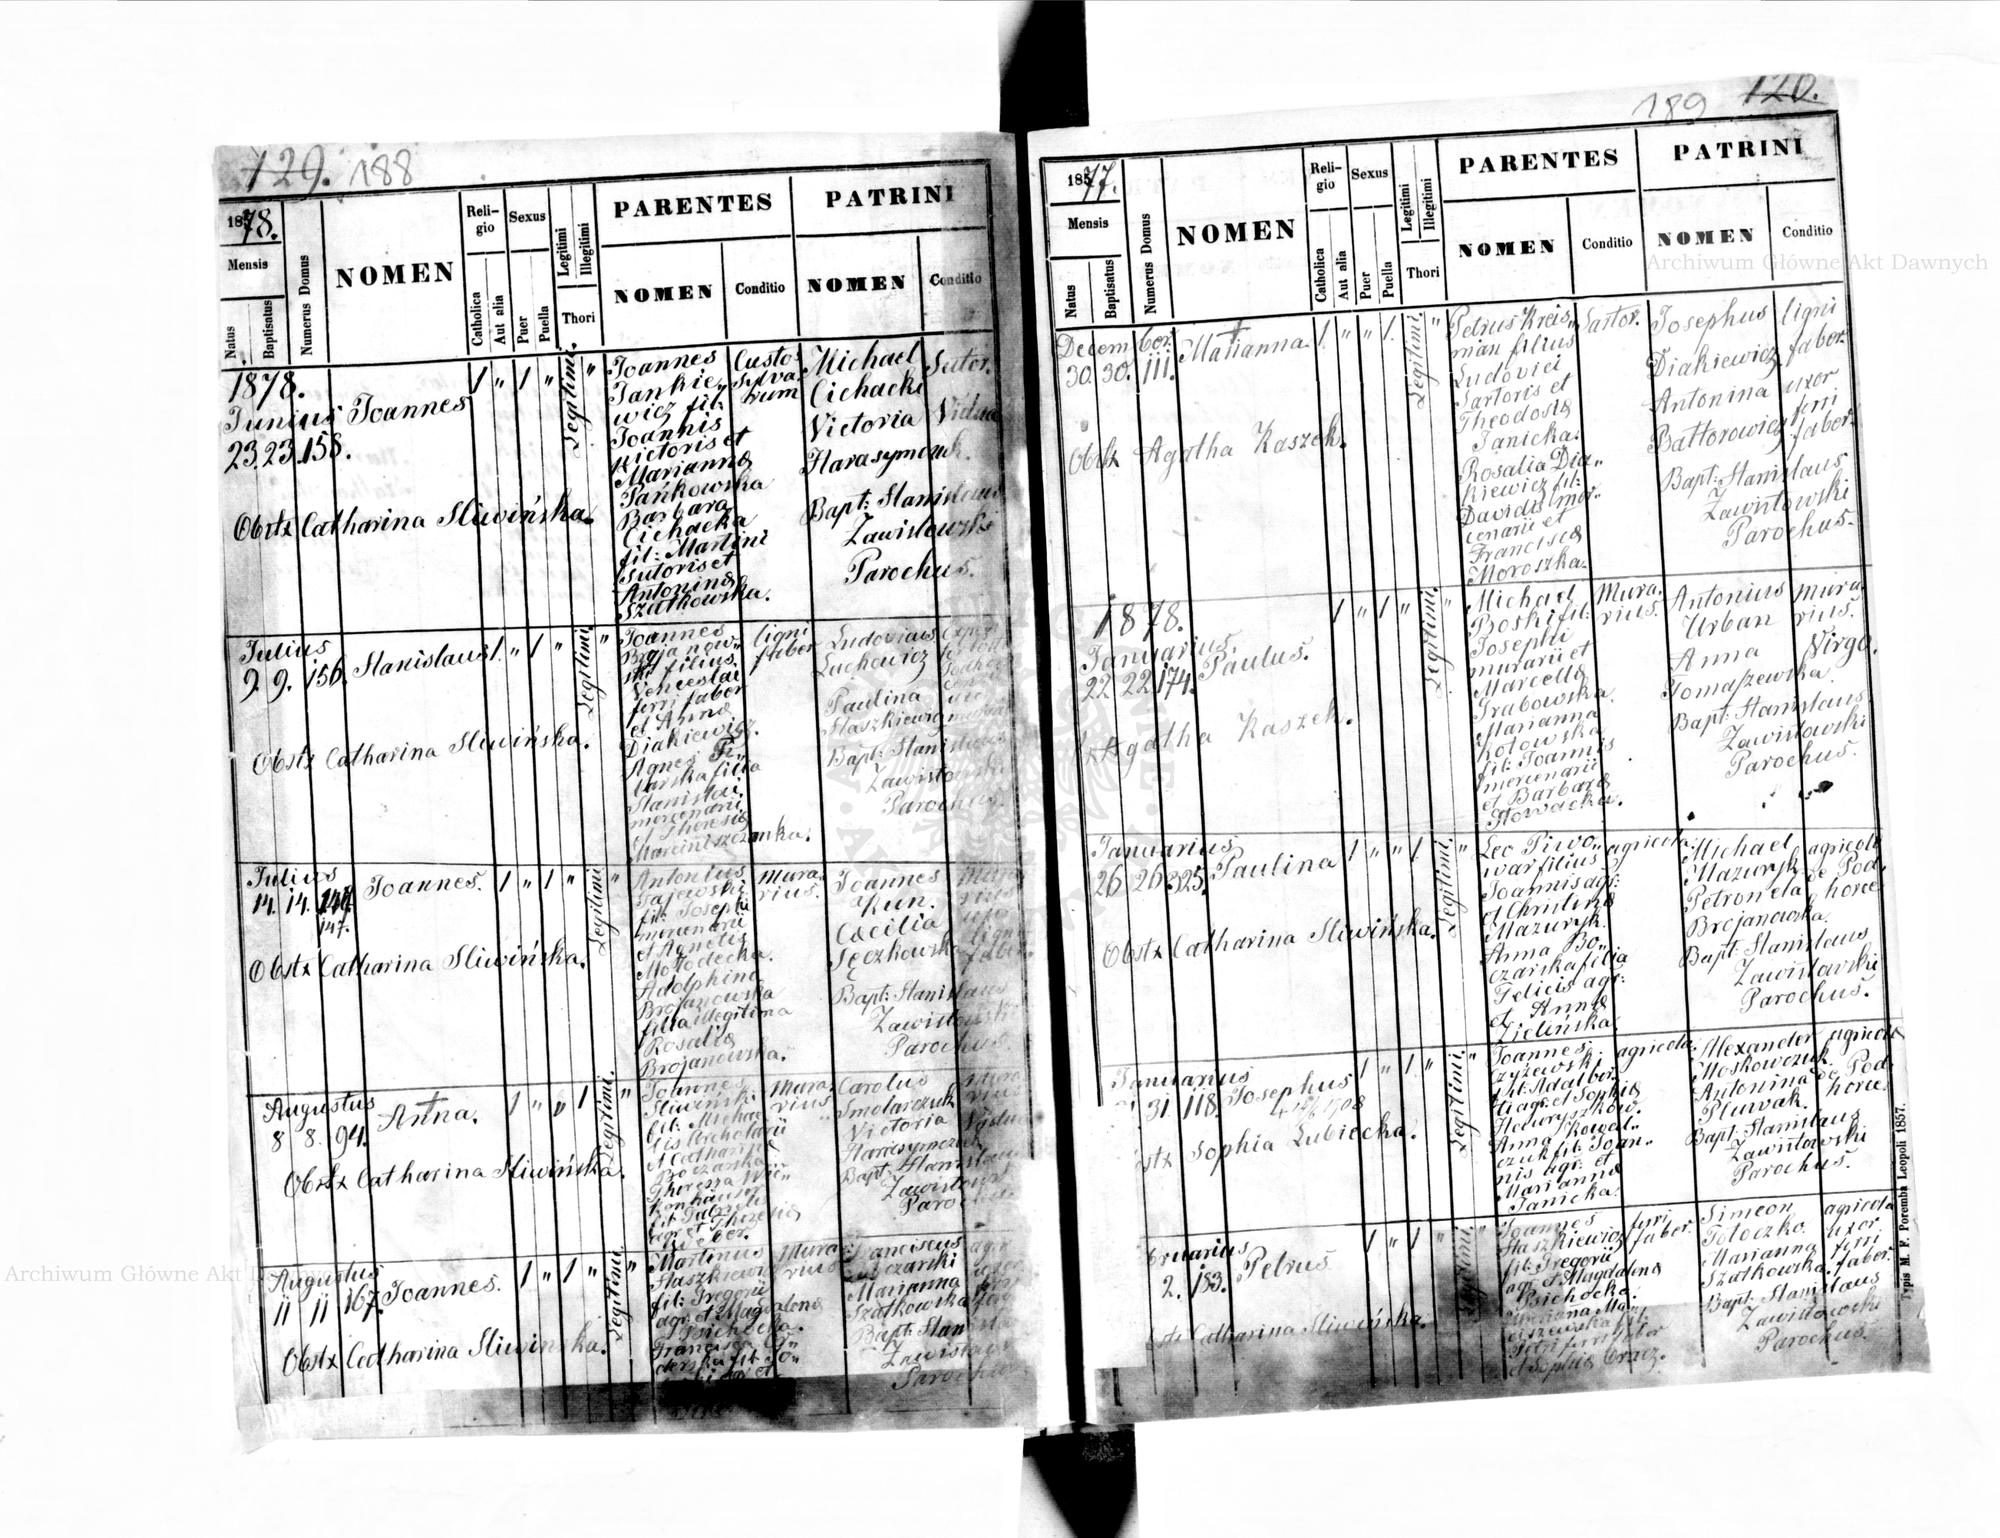 129. 188
1878.
Mensis
Natus
Baptisatus
Numerus Domus
NOMEN
Religio
Catholica
Aut alia
Sexus
Puer
Puella
Legitimi
Illegitimi
Thori
PARENTES
NOMEN
Conditio
PATRINI
NOMEN
Conditio
1878.
Junius
23. 23. 158.
Joannes
1 " 1 "
Legitimi.
"
Joannes
Jankie„
wicz fil:
Joannis
Marianna
Pańkowska
Barbara
Cichacka
fil: Martini
Sutoris et
Antonina
Szatkowska.
Custos
sylva
rum
Michael
Cichacki
Victoria
Harasymczuk.
Sutor.
Vidua
Bapt: Stanislaus
Zawistowski
Parochus.
Obstx Catharina Sliwińska.
Julius
9. 9. 156.
Stanislaus
1. " 1 "
Legitimi.
"
Joannes
ski filius
Venceslai
ferri fabor
et Anna
Diakiewicz.
Agnes
filia
Stanislai
mercenarii
et Theresia
Marciniszczanka.
ligni
faber
Ludovicus
Luchowicz
Paulina
Staszkiewicz
Bapt: Stanislaus
Zawistowski
Parochus.
Obstx Catharina Sliwińska.
Julius
14. 14. 147.
147.
Joannes.
1 " 1 "
Legitimi
"
Antonius
Gajewski
fil: Josephi
mercenarii
et Agnetis
Motodecka.
Adolphina
Brojanowska
filia illegitima
Rosalia
Brojanowska.
Mura
rius.
Joannes
Kun.
Cæcilia
Jęczkowska
Bapt: Stanislaus
Zawistowski
Parochus.
Obstx Catharina Sliwińska.
Augustus
8 8. 94.
Anna.
1 " " 1
Legitimi.
"
Joannes
Sliwiński
fil: Michae
lis
et Catharina
Boczarska
Theressa
agr et Theresia
Mura
rius
Carolus
Smolarczuk
Victoria
Harasymczuk
Bapt: Stanislaus
Zawistowski
Parochus
Obstx Catharina Sliwińska.
Augustus
11 11 167.
Joannes.
1 " 1 "
Legitimi.
"
Martinus
Staszkiewicz
fil: Gregorii
agr. et Magdalena
Psichocka.
Francisca
Mura
rius
Franciscus
Boczarski
Marianna
Szatkowska
Bapt: Stanislaus
Zawistowski
Parochus
Obstx Catharina Sliwińska.
189 120.
1877.
Mensis
Natus
Baptisatus
Numerus Domus
NOMEN
Religio
Catholica
Aut alia
Sexus
Puer
Puella
Legitimi
Illegitimi
Thori
PARENTES
NOMEN
Conditio
PATRINI
NOMEN
Conditio
December.
30. 30. 111.
Marianna.
1. " " 1.
Legitimi.
"
Petrus Kreis„
man filius
Ludovici
Sartoris et
Theodosia
Janicka.
Rosalia Dia„
kiewicz fil:
Davidis mer„
cenarii et
Francisca
Moroszka.
Sartor.
Josephus
Diakiewicz
Antonina
Battorowicz
ligni
faber.
uxor
ferri
fabor.
Bapt: Stanislaus
Zawistowski
Parochus.
Obstx Agatha Kaszek.
1878.
Januarius.
22 22. 174.
Paulus.
1 " 1 "
Legitimi.
"
Michael
Boski fil:
Josephi
murarii et
Marcella
Grabowska.
Marianna
Kotowska
fil: Joannis
mercenarii
et Barbara
Nowacka.
Mura
rius.
Antonius
Urban
Anna
Tomaszewska.
mura
rius.
Virgo.
Bapt: Stanislaus
Zawistowski
Parochus.
Agatha Kaszek.
Januarius
26 26 325.
Paulina
1 " " 1.
Legitimi.
"
Leo Piwo„
war filius
Joannis agr:
et Christina
Mazuryk.
Anna Bo„
czarska filia
Felicis agr:
et Anna
Zielinska.
agricola.
Michael
Mazuryk
Petronela
Brojanowska.
agricola
de Pod
horce.
Bapt: Stanislaus
Zawistowski
Parochus.
Obstx Catharina Sliwińska.
Januarius
31. 118.
Josephus
1908
1 " 1. "
Legitimi.
"
Joannes
Czyżewski
fil: Adalber„
ti agr. et Sophia
Anna Kowal„
czuk fil: Joan„
nis agr. et
Marianna
Janicka.
agricola.
Alexander
Moskowczuk
Antonina
Pluwak.
agricola
de Pod
horce.
Bapt: Stanislaus
Zawistowski
Parochus.
Sophia Lubiecka.
bruarius
2. 183.
Petrus
1 " 1 "
Legitimi.
"
Joannes
Staszkiewicz
fil: Gregorii
agr. et Magdalena
Psichocka.
Marianna Ma„
ciszewska fil:
Petri ferri fabor
et Sophia Gracz.
ferri
faber.
Simeon
Totoczko.
Marianna
Szatkowska.
agricola
uxor
ferri
faber.
Bapt: Stanislaus
Zawistowski
Parochus.
Catharina Sliwińska.
Typis M. F. Poremba Leopoli 1857.
Archiwum Główne Akt Dawnych
Archiwum Główne Akt Dawnych